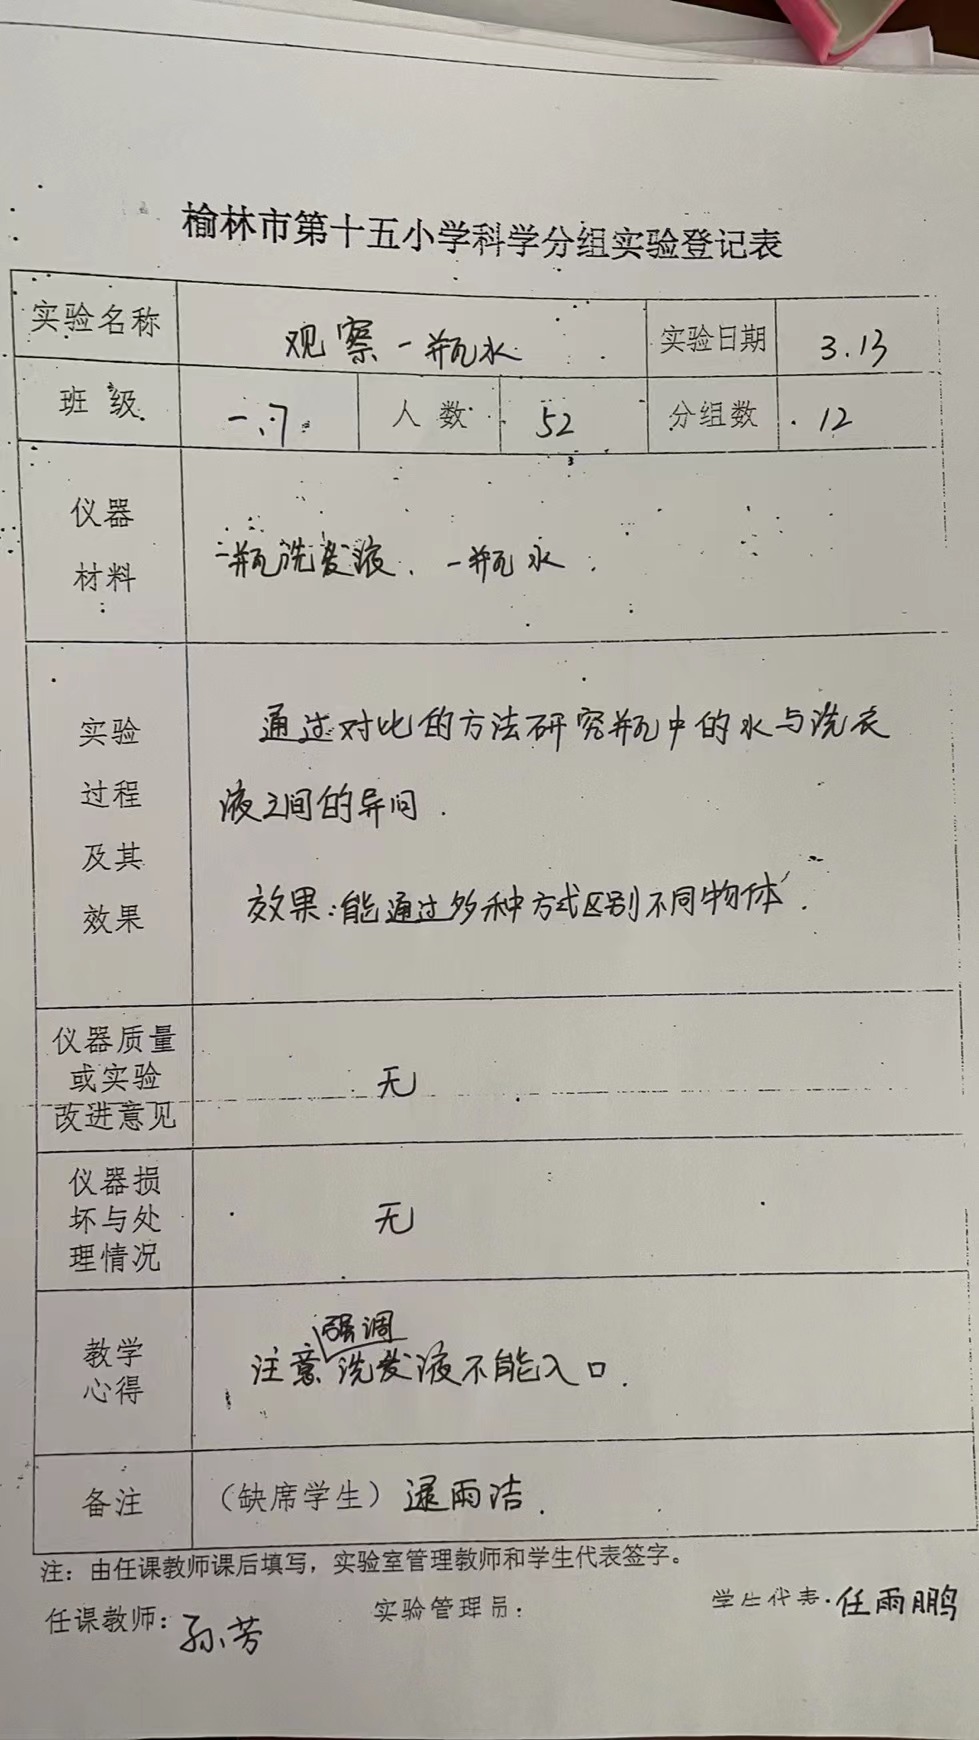 榆林市第十五小学科学分组实验登记表
实验名称 观察一瓶水 实验日期 3.13
班级 一、7 人数 52 分组数 12
仪器
材料
一瓶洗发液、一瓶水.
实验
过程
及其
效果
通过对比的方法研究瓶中的水与洗衣
液之间的异同.
效果:能通过多种方式区别不同物体.
仪器质量
或实验
改进意见
无
仪器损
坏与处
理情况
无
教学
心得
强调
注意洗发液不能入口.
备注 (缺席学生) 雨洁.
注：由任课教师课后填写，实验室管理教师和学生代表签字。
任课教师：孙芳 实验管理员： 学生代表.任雨鹏